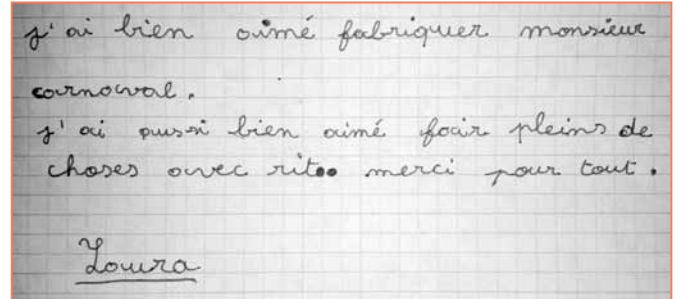 j'ai bien aimé fabriquer monsieur
carnaval.
j'ai aussi bien aimé fair pleins de
choses avec rita merci pour tout.
Laura